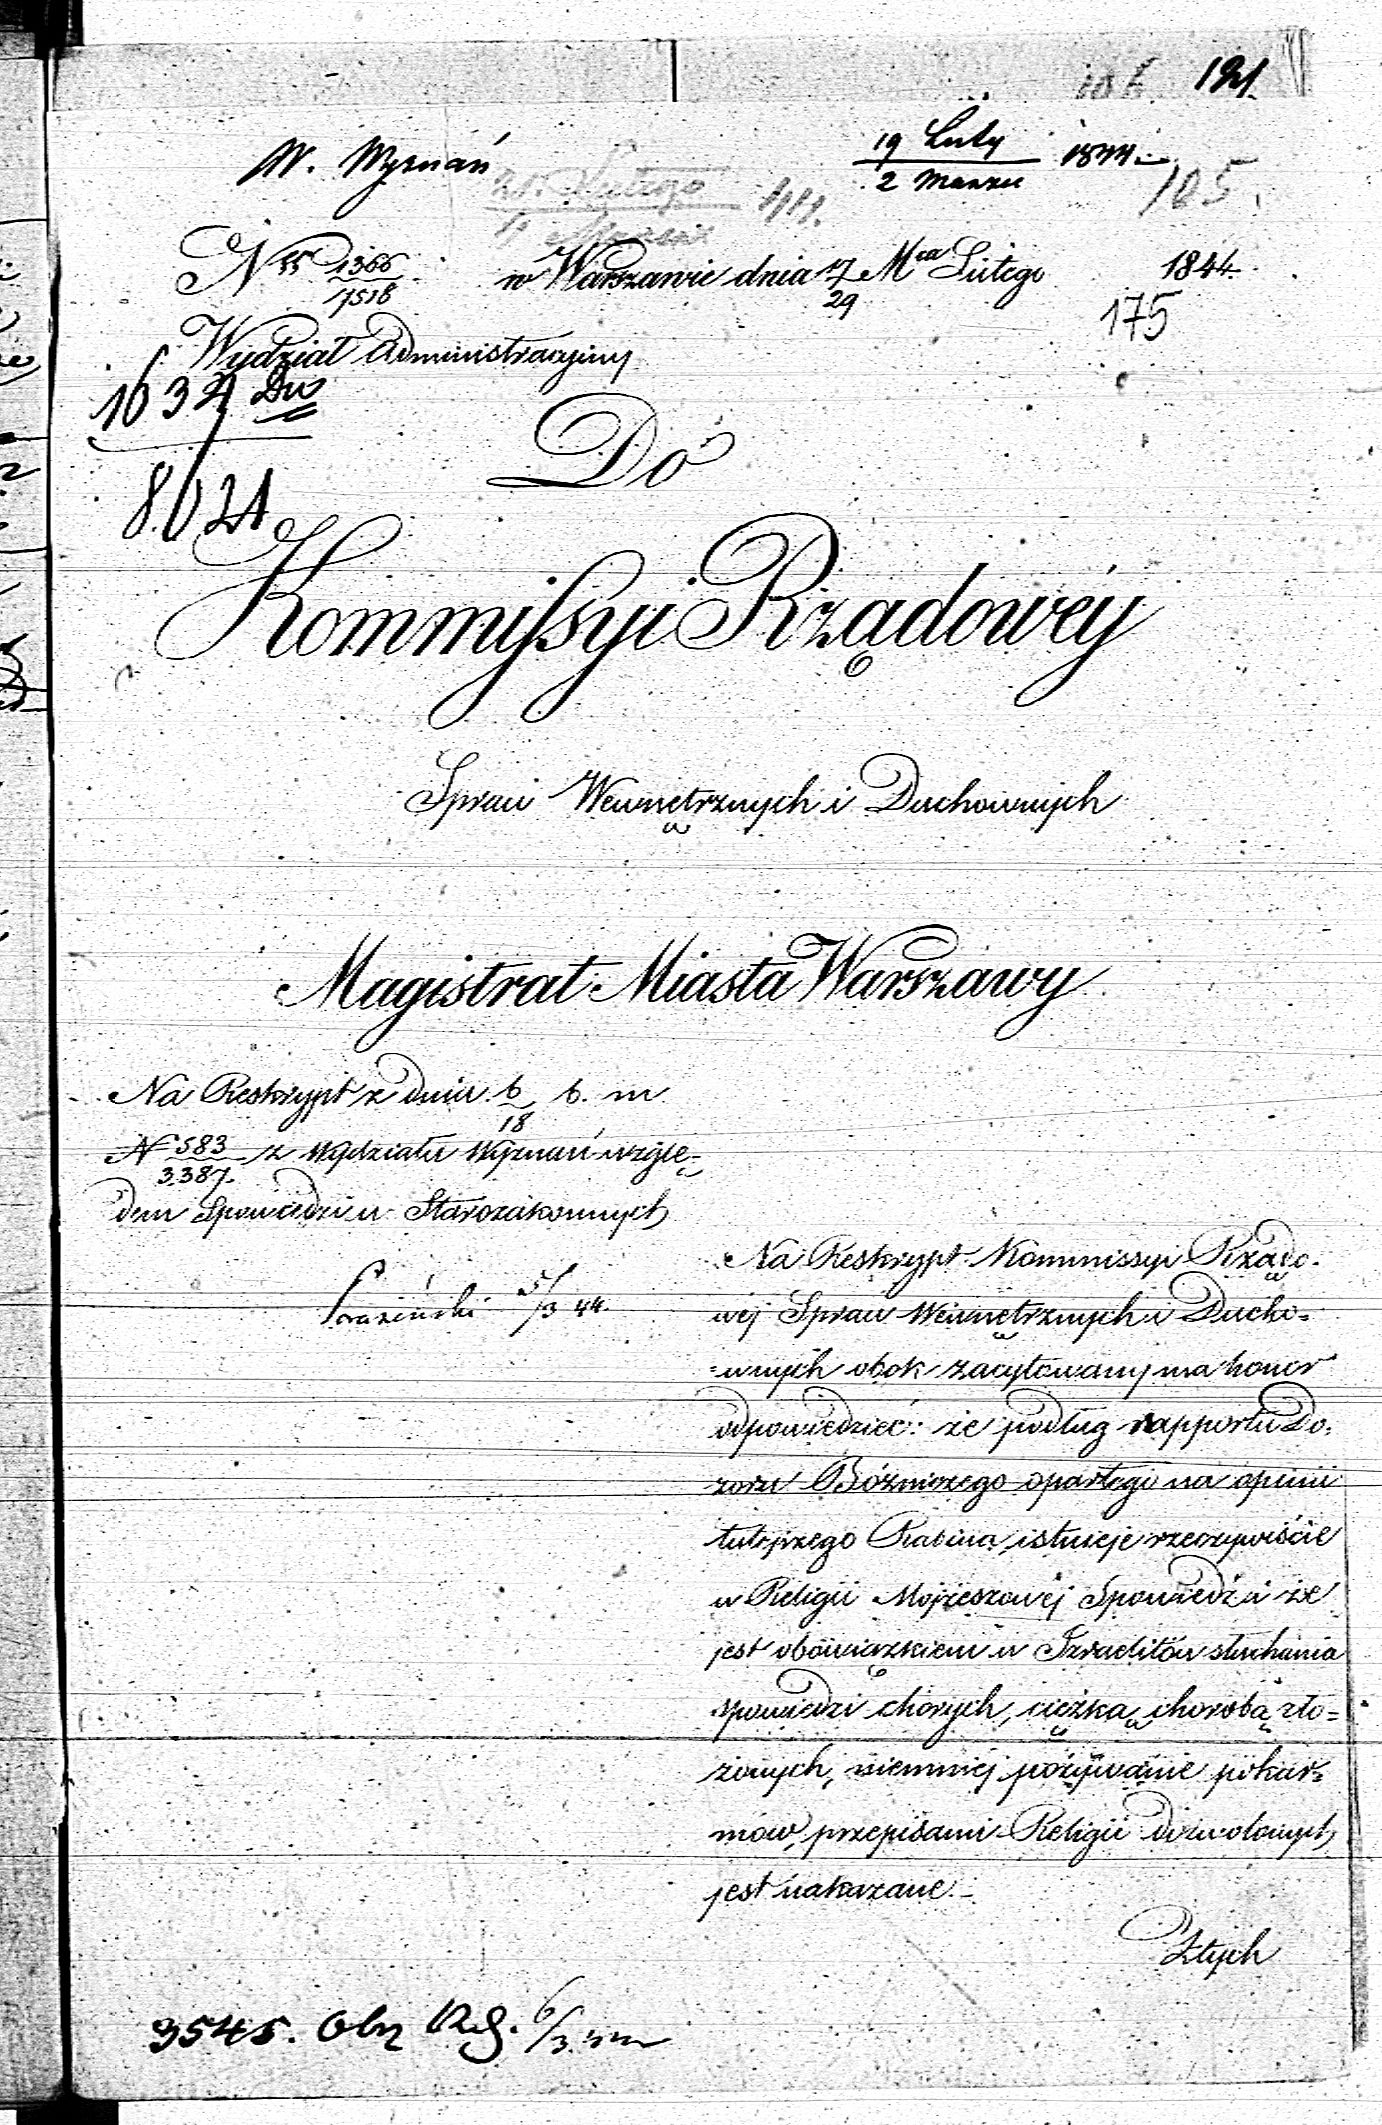 121
W. Wyznań
19 Luty 1844.
2 Marzec
105
21. Lutego
N 1366 w Warszawie dnia 17 Mca Lutego 1844
7518 29
175
Wydział Administracyiny
1634 Du
8021
Do
Kommissyi Rządowéy
Spraw Wewnętrznych i Duchownych
Magistrat Miasta Warszawy
Na Reskrypt z dnia 6 b. m
18
N 583 z Wydziału Wyznań wzglę-
3387.
dem Spowiedzi u Starozakonnych
5/3 44.
Na Reskrypt Kommissyi Rządo-
wéj Spraw Wewnętrznych i Ducho=
=wnych obok zacytowany ma honor
odpowiedzieć: że podług rapportu Do=
zoru Bóżniczego opartego na opinii
tutejszego Rabina, istnieje rzeczywiście
w Religii Mojżeszowéj Spowiedź i że
jest obowiązkiem u Izraelitów słuchania
spowiedzi chorych, ciężką chorobą zło=
żonych, niemniéj pożywanie pokar=
mów przepisami Religii dozwolonych
jest nakazane.
Z tych
3545. 6/3